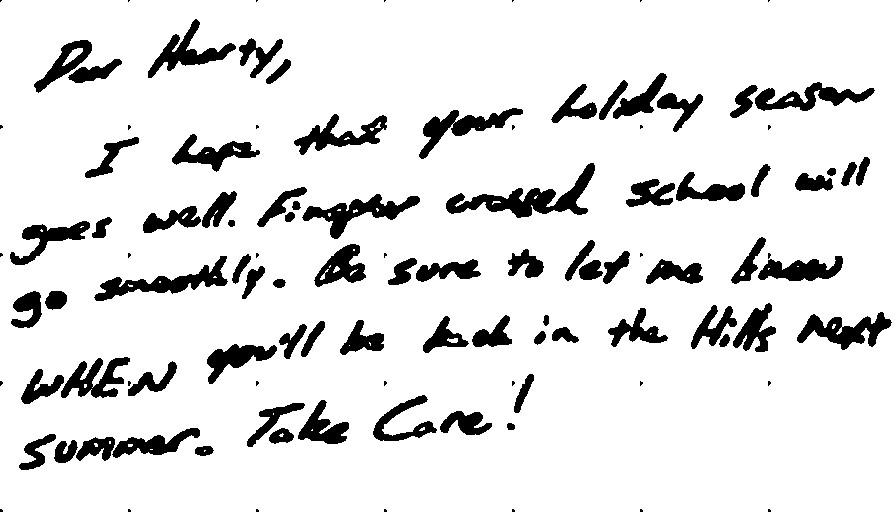 Dear Hearty,
I hope that your holiday season
goes well. Fingers crossed school will
go smoothly. Be sure to let me know
WHEN you'll be back in the Hills next
summer. Take Care!